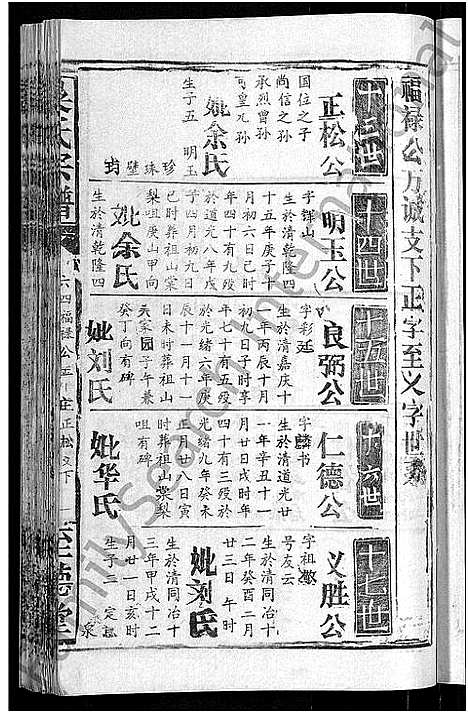 福禄公万诚支下正字至义字世系
十三世
正松公
国位之子
尚信之孙
承烈曾孙
可皇元孙
妣余氏
生子五 明玉
珍 珠 璧
十四世
明玉公
字辉山
生於清乾隆四
十五年庚子十
月初六日巳时
年四十有九殁
於道光八年戌
子四月初九日
巳时葬祖山棠
梨咀庚山甲向
妣余氏
生於清乾隆四
十五世
良弼公
字彩廷
生於清嘉庆十
九年丙辰十月
初九日子时享
年七十有五殁
於光绪六年庚
辰十一月十一
日未时葬祖山
关家园子午兼
癸丁向有碑
妣刘氏
十六世
仁德公
字麟书
生於清道光廿
一年辛丑十一
月廿日戌时年
四十有三殁於
光绪九年癸未
正月廿八日寅
时葬祖山棠梨
咀有碑
妣华氏
十七世
义胜公
字祖懋
号友云
生於清同治十
二年癸酉二月
廿三日午时
妣刘氏
生於清同治十
三年甲戌十二
月廿一日亥时
生子二 定
泉
氏宗谱
六四福禄公
正松支下
至德堂